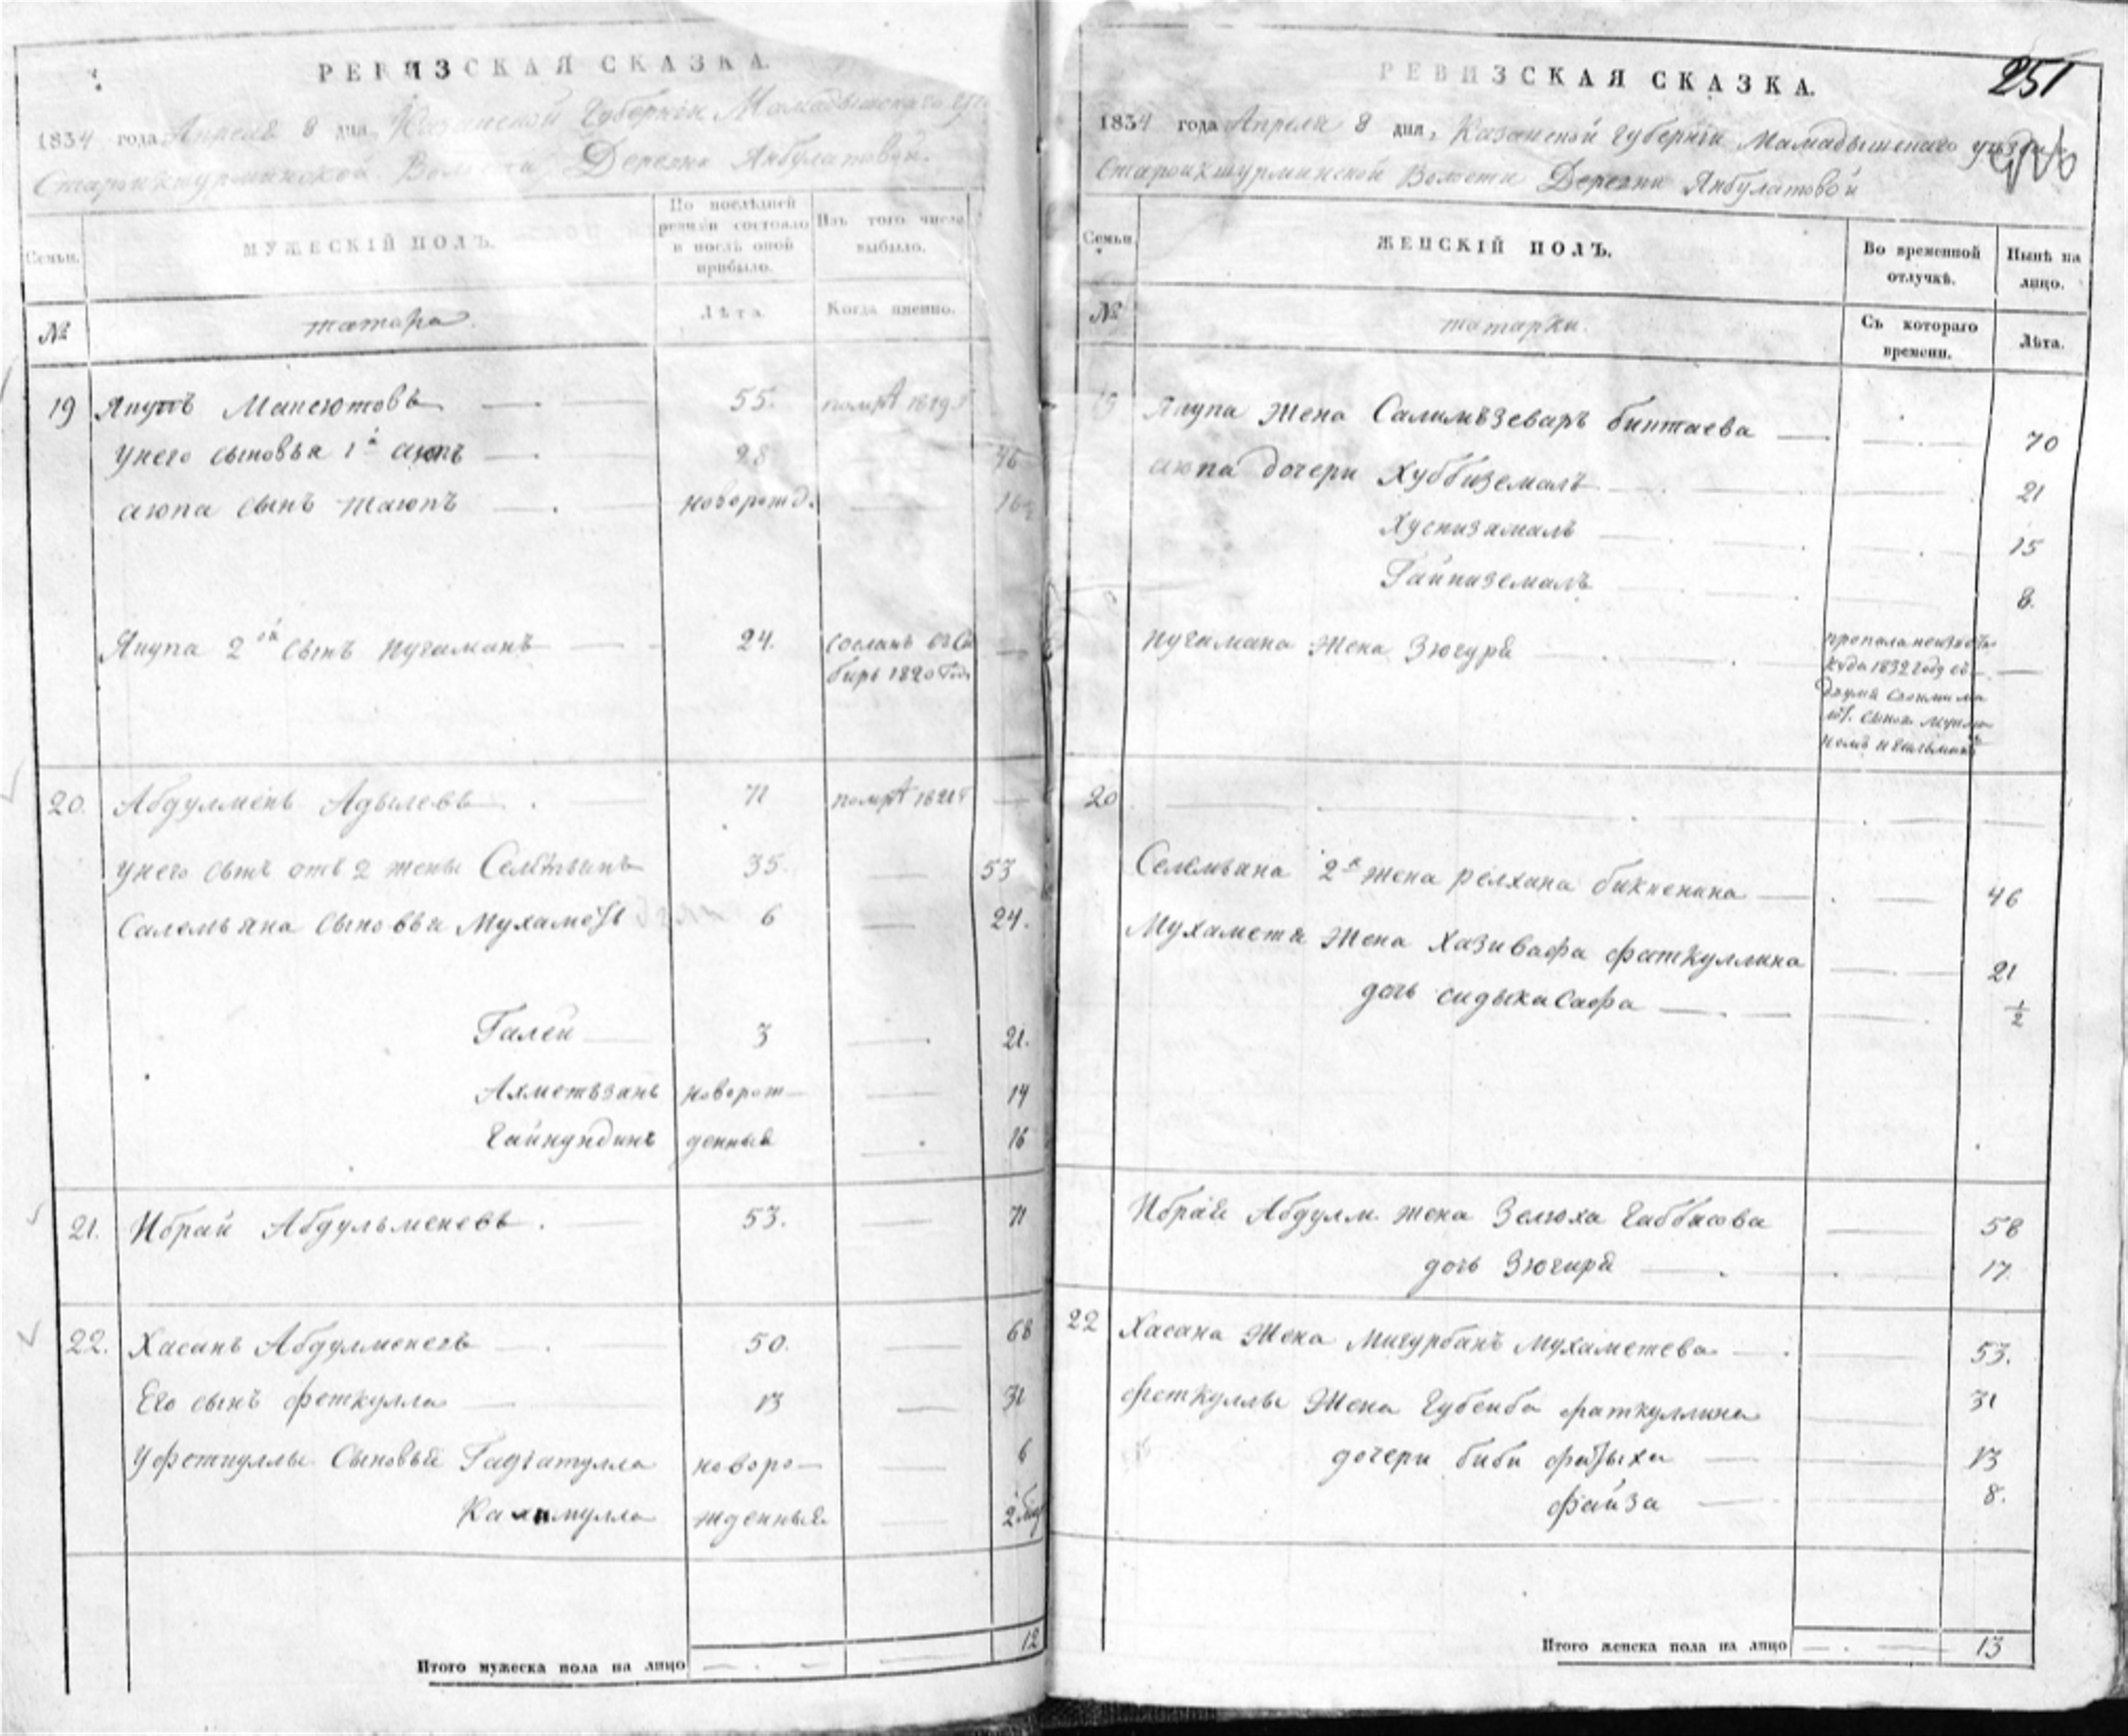 РЕВИЗСКАЯ СКАЗКА.
1834 года Апреля 8 дня, Казанской Губернии Мамадышскаго
Староикшурминской Волости Деревни Янбулатовой.
Семьи.
МУЖЕСКІЙ ПОЛЪ.
По послѣдней ревизіи состояло и послѣ оной прибыло.
Изъ того числа выбыло.
№
татара.
Лѣта.
Когда именно.
19 Якупъ Мансютовъ 55. помръ 1819
у него сыновья 1й аюпъ 28 46
аюпа сынъ Таюпъ новорожд. 16
Якупа 2ой сынъ Нугаманъ 24. сосланъ въ Си
бирь 1820 Года
20. Абдулменъ Адылевъ 71 помръ 1821
у него сынъ отъ 2 жены Селемьянъ 35. 53
Салемьяна сыновья Мухаметъ 6 24.
Галей 3 21.
Ахметьзянъ новорож 14
Гайнундинъ денныя 16
21. Ибрай Абдульменевъ. 53. 71
22. Хасанъ Абдулменевъ 50. 68
Его сынъ феткулла 13 31
У феткуллы Сыновья новоро 6
жденныя 2
Итого мужеска пола на лицо 12
РЕВИЗСКАЯ СКАЗКА.
251
1834 года Апреля 8 дня, Казанской Губерніи Мамадышскаго уезда
Староикшурминской Волости Деревни Янбулатовой
Семьи.
ЖЕНСКІЙ ПОЛЪ.
Во временной отлучкѣ.
Нынѣ на лицо.
№
татарки.
Съ котораго времени.
Лѣта.
19 Якупа жена Салимъзеваръ биктаева 70
аюпа дочери Хуббиземалъ 21
Хуснизямалъ 15
Гайниземалъ 8.
Нугамана жена Зюгура пропала неизвесть
куда 1832 году съ
двумя своими ма
20
Селемьяна 2я жена релхана бикненина 46
Мухаметя жена Хазивафа фаткуллина 21
дочь сидыкасафа 1/2
Ибрая Абдулм. жена Зелюха Габбясова 58
дочь Зюгира 17.
22 Хасана жена Мигурбанъ Мухаметева 53.
феткуллы жена Губенба фаткуллина 31
дочери биби фатыха 13
файза 8.
Итого женска пола на лицо 13